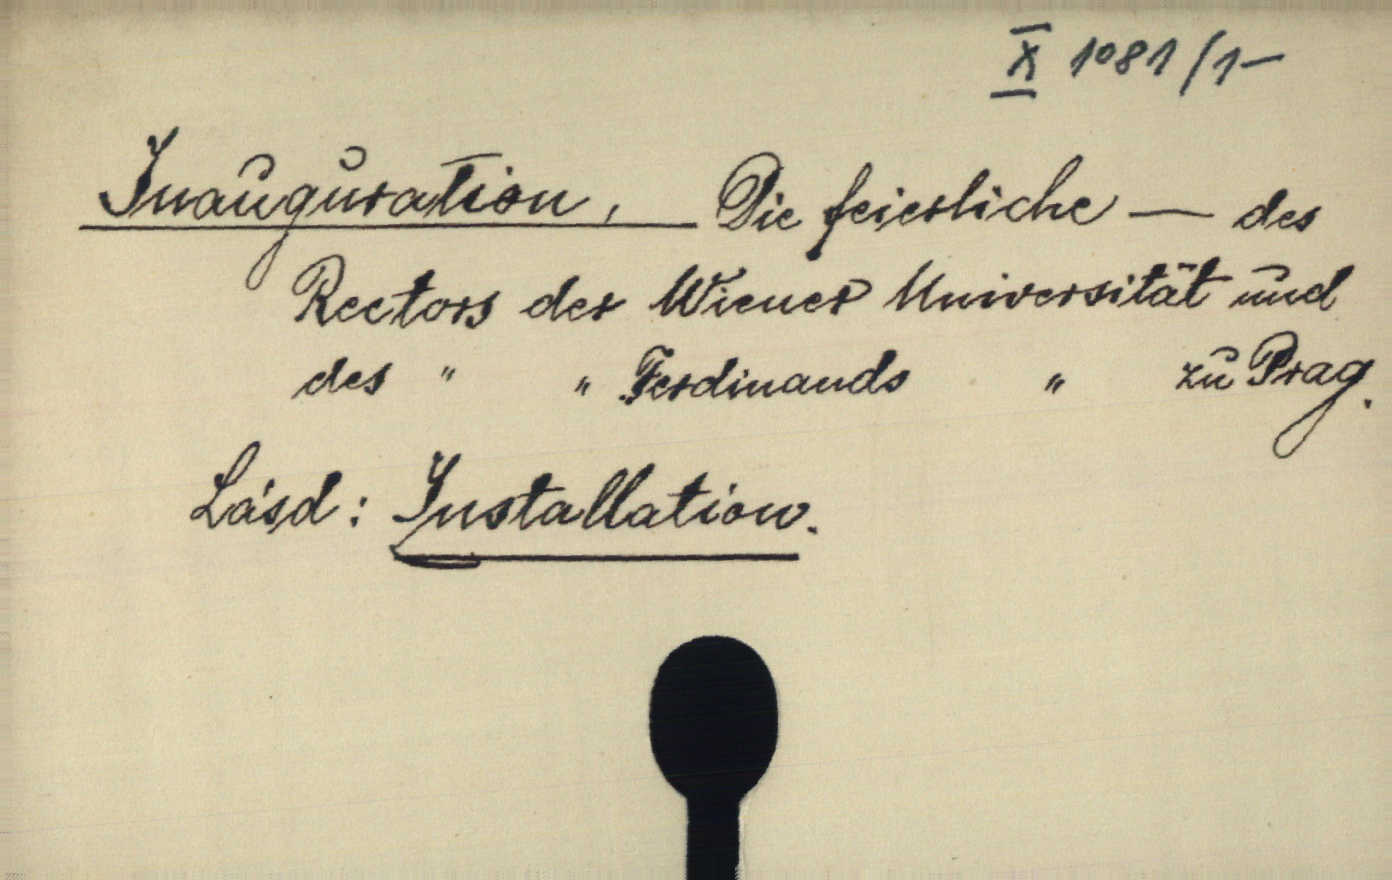 X 1081/1-
Inauguration, Die feierliche — des
Rectors der Wiener Universität und
des " " Ferdinands " zu Prag.
Lásd: Installation.